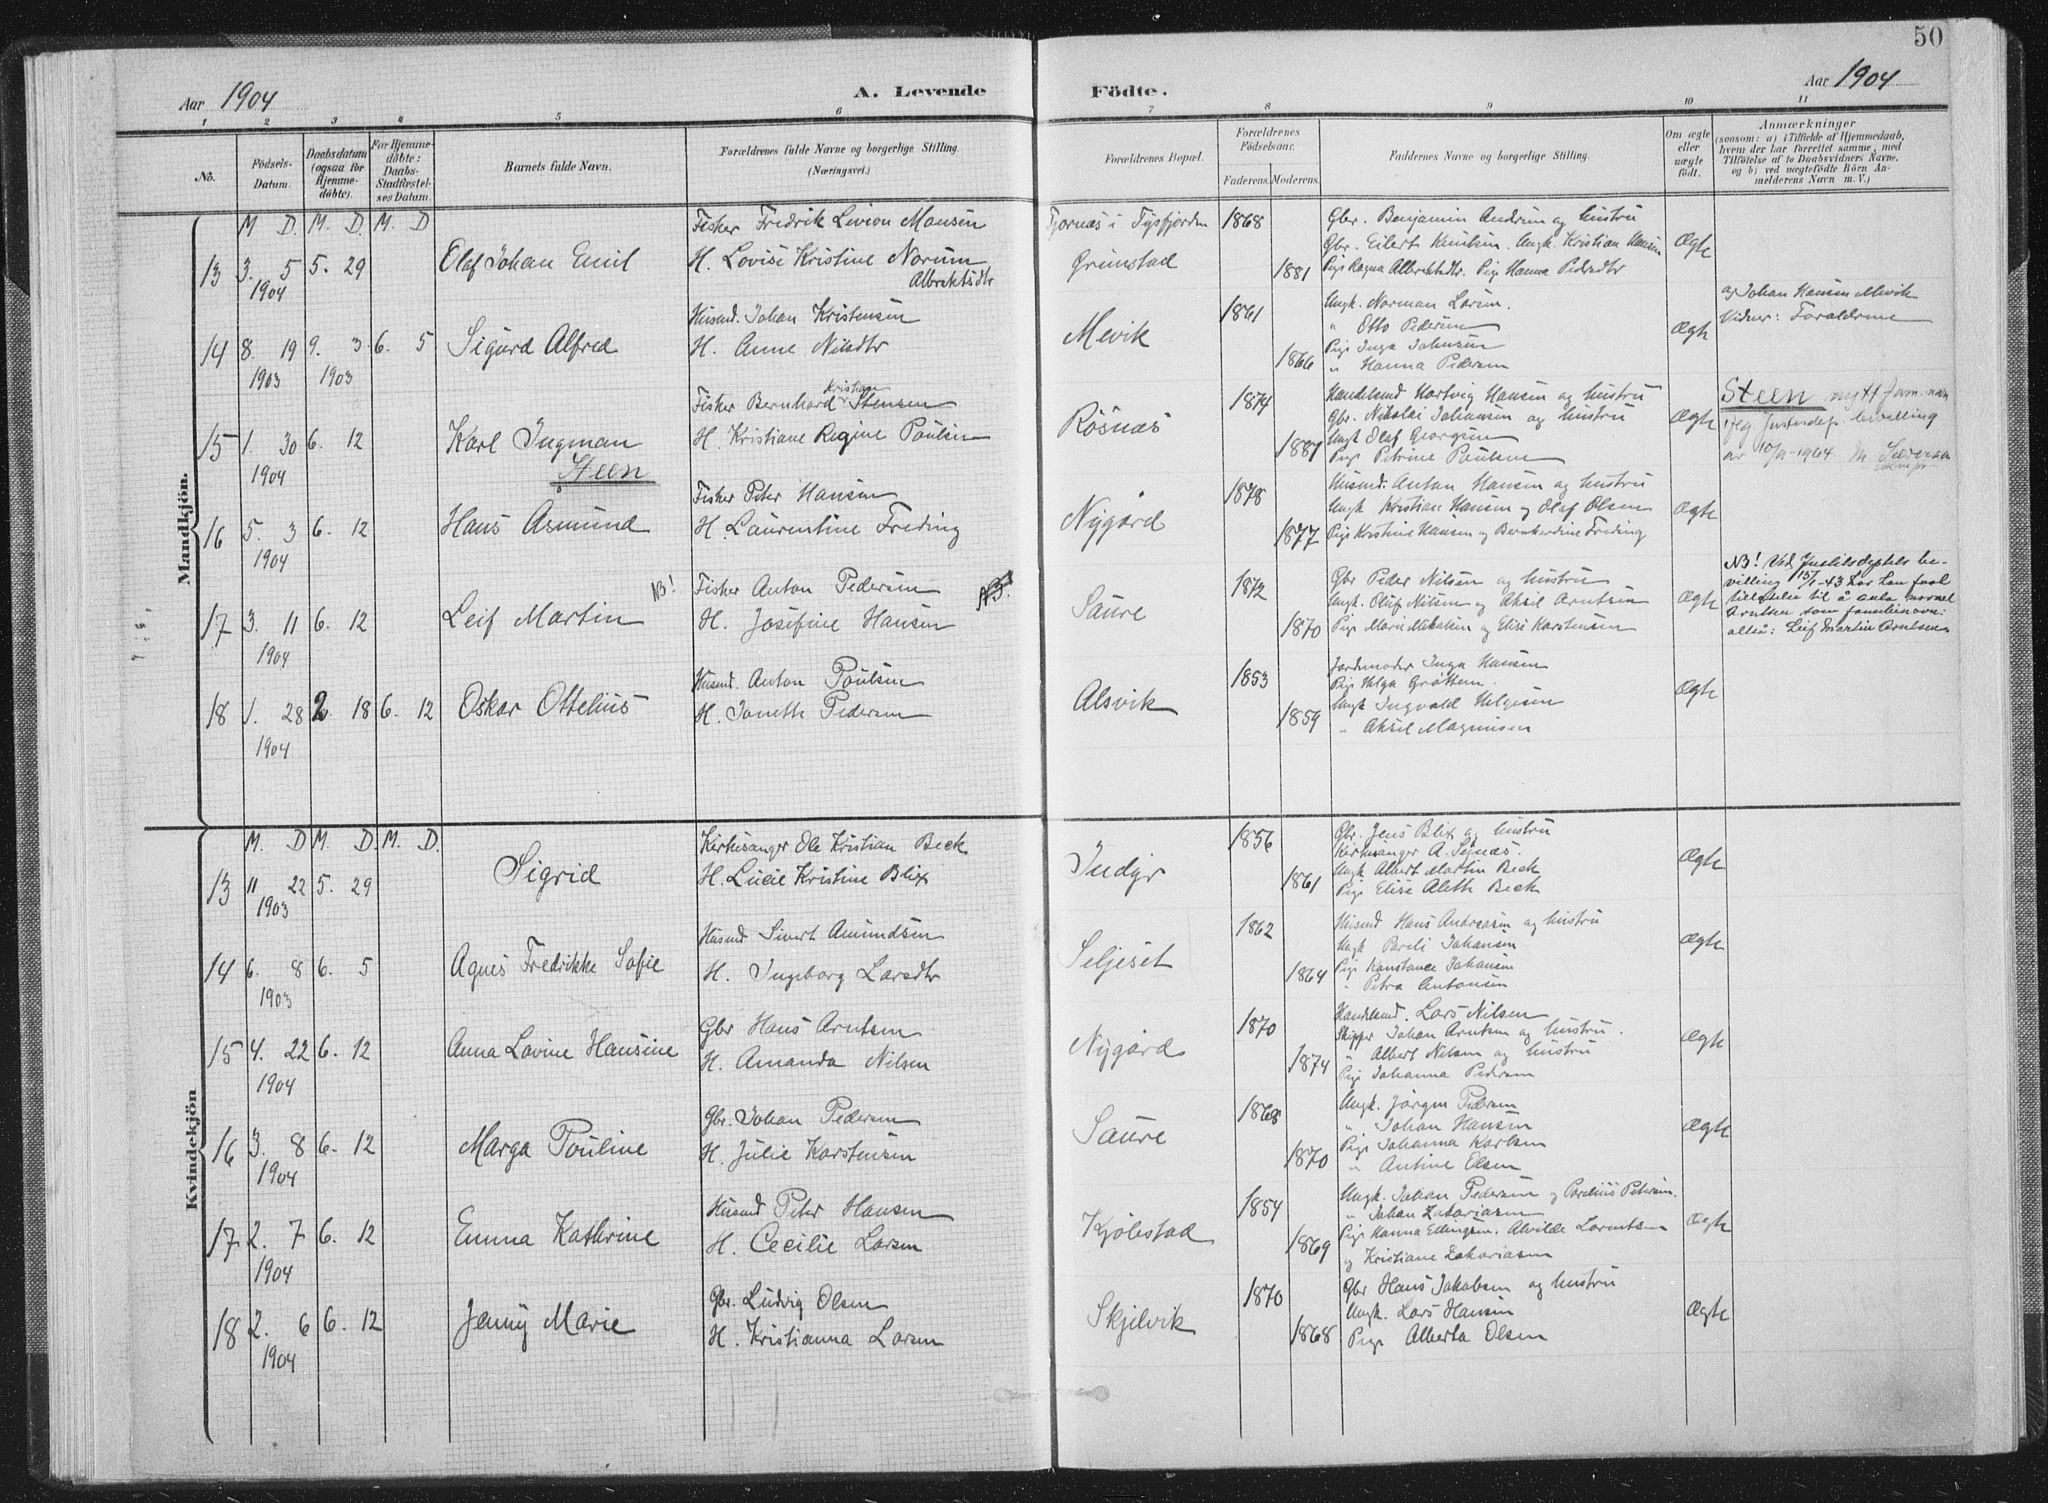 50
Aar 1904
A. Levende
Födte.
Aar 1904
1 2 3 4 5 6 7 8 9 10 11
No.
Födsels-Datum.
Daabsdatum (ogsaa for Hjemme-döbte).
For Hjemme-döbte: Daabs-Stadfæstel-ses Datum.
Barnets fulde Navn.
Forældrenes fulde Navne og borgerlige Stilling.
(Næringsvei.)
Forældrenes Bopæl.
Forældrenes Födselsaar.
Faderens. Moderens.
Faddernes Navne og borgerlige Stilling.
Om ægte eller uægte födt.
Anmærkninger
(saasom: a) i Tilfælde af Hjemmedaab,
hvem der har forrettet samme, med
Tilföielse af to Daabsvidners Navne,
og b) ved uægtefödte Börn An-
melderens Navn m. V.)
Mandkjön.
M D. M. D. M. D
13 3. 5 1904 5. 29 Olaf Johan Emil
Fisker Fredrik Livion Monsen
H. Lovise Kristine Norum
Albrektsdtr
Tjornæs i Tysfjorden
Grimstad
1868
1881
Gbr. Benjamin Andersen og hustru
Gbr. Eilert Knutsen. Ungk. Kristian Hansen
Pige Ragna Albrektsdtr. Pige Hanna Pedersdtr
Ægte
14 8. 19 1903 9. 3 1903 6. 5 Sigurd Alfred
Husmd. Johan Kristensen
H. Anne Nilsdtr
Mevik
1861
1866
Ungk. Norman Larsen.
" Otto Pedersen
Pige Inga Johnsen
" Hanna Pedersen
Ægte
af Johan Hansen Mevik
Vidner: Forældrene
15 1. 30 1904 6. 12 Karl Ingman
Steen
Fisker Bernhard Kristian Stensen
H. Kristiane Regine Poulsen
Rösnæs
1874
1887
Handelsmd Hartvig Hansen og hustru
Gbr. Nikolai Johansen og hustru
Ungk Olaf Georgsen
Pige Petrine Paulsen
Ægte
Steen nytt fam.navn
ifølg Justisdep. bevilling
av 10/9-1964
16 5. 3 1904 6. 12 Hans Asmund
Fisker Peter Hansen
H. Laurentine Freding
Nygård
1878
1877
Husmd. Anton Hansen og hustru
Ungk Kristian Hansen og Olaf Olsen
Pige Kristine Hansen og Bernhardine Freding
Ægte
17 3. 11 1904 6. 12 Leif Martin NB!
Fisker Anton Pedersen NB!
H. Josefine Hansen
Saure
1872
1870
Gbr Peder Nilsen og hustru
Ungk. Oluf Nilsen og Aksel Arntsen
Pige Marie Mikalsen og Elise Karstensen
Ægte
NB! Ved Justisdeptets be-
villing 15/1-43 har han faat
tilladelse til å anta navnet
Arntsen som familienavn:
altså: Leif Martin Arntsen.
18 1. 28 1904 2. 18 6. 12 Oskar Ottelius
Husmd. Anton Poulsen
H. Janette Pedersen
Alsvik
1853
1859
Jordmoder Inga Hansen
Pige Helga Gröttem.
Ungk Ingvald Helgesen
" Aksel Magnusen
Ægte
Kvindekjön
M. D M. D. M. D.
13 11 22 1903 5. 29 Sigrid
Kirkesanger Ole Kristian Beck
H. Lucie Kristine Blix
Indyr
1856
1861
Gbr. Jens Blix og hustru
Kirkesanger A. Seines.
Ungk Albert Martin Beck
Pige Elise Aleth Beck
Ægte
14 6. 8 1903 6. 5 Agnes Fredrikke Sofie
Husmd Sivert Amundsen
H. Ingeborg Larsdtr
Seljeset
1862
1864
Husmd Hans Andreasen og hustru
Ungk Pareli Johansen
Pige Konstance Johansen
" Petra Antonsen
Ægte
15 4. 22 1904 6. 12 Anna Lovine Hansine
Gbr Hans Arntsen
H. Amanda Nilsen
Nygård
1870
1874
Handelsmd. Lars Nilsen
Skipper Johan Arntsen og hustru.
" Albert Nilsen og hustru
Pige Johanna Pedersen
Ægte
16 3. 8 1904 6. 12 Marga Pouline
Gbr. Johan Pedersen
H. Julie Karstensen
Saure
1868
1870
Ungk. Jörgen Pedersen
" Johan Hansen
Pige Johanna Karlsen
" Antine Olsen
Ægte
17 2. 7 1904 6. 12 Emma Kathrine
Husmd Peter Hansen
H. Cecilie Larsen
Kjölestad
1854
1869
Ungk. Johan Pedersen og Parelius Petersen.
" Johan Zakariasen
Pige Hanna Ellingsen. Alvilde Lorentsen
og Kristiane Zakariasen
Ægte
18 2. 6 1904 6. 12 Jenny Marie
Gbr. Ludvig Olsen
H. Kristianna Larsen
Skjelvik
1870
1868
Gbr Hans Jakobsen og hustru
Ungk. Lars Hansen
Pige Alberta Olsen
Ægte